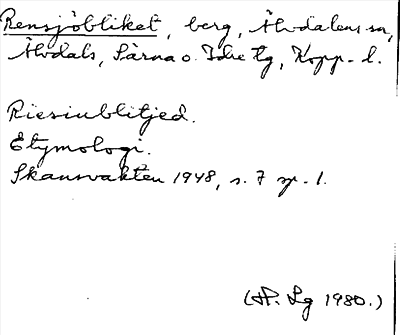 Rensjöbliket, berg, Älvdalens sn,
Älvdals, Särna o. Idre tg, Kopp. l.
Riesiublitjed.
Etymologi.
Skansvakten 1948, s. 7 sp. 1.
(H. Lg 1980.)